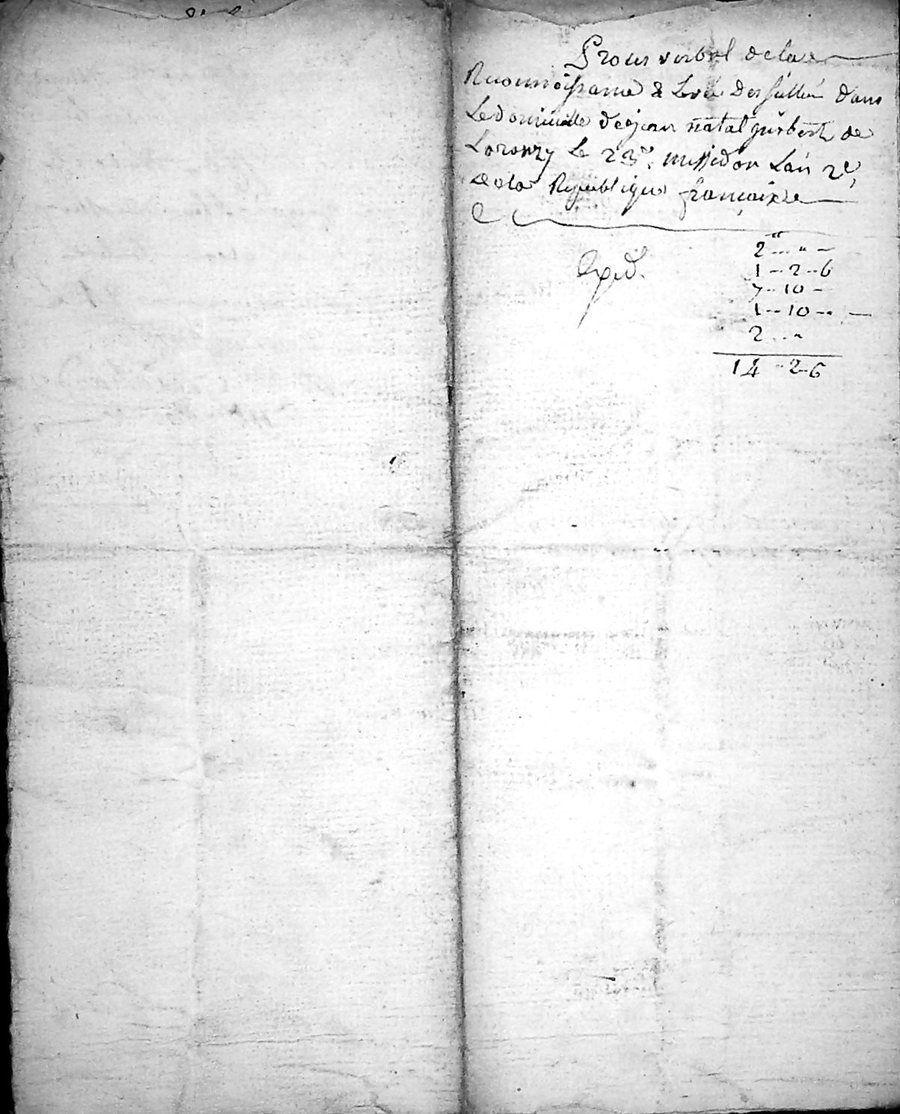 Proces verbal de la
Reconnoissance & Levée des sçellés dans
Le domicille de jean natal gisbert de
Le 23.e messidor L'an 2.e
de la Republique françoise
Exped.
2 -- " --
1 -- 2 -- 6
7 -- 10 --
1 -- 10 --
2 -- "
14 -- 2 -- 6